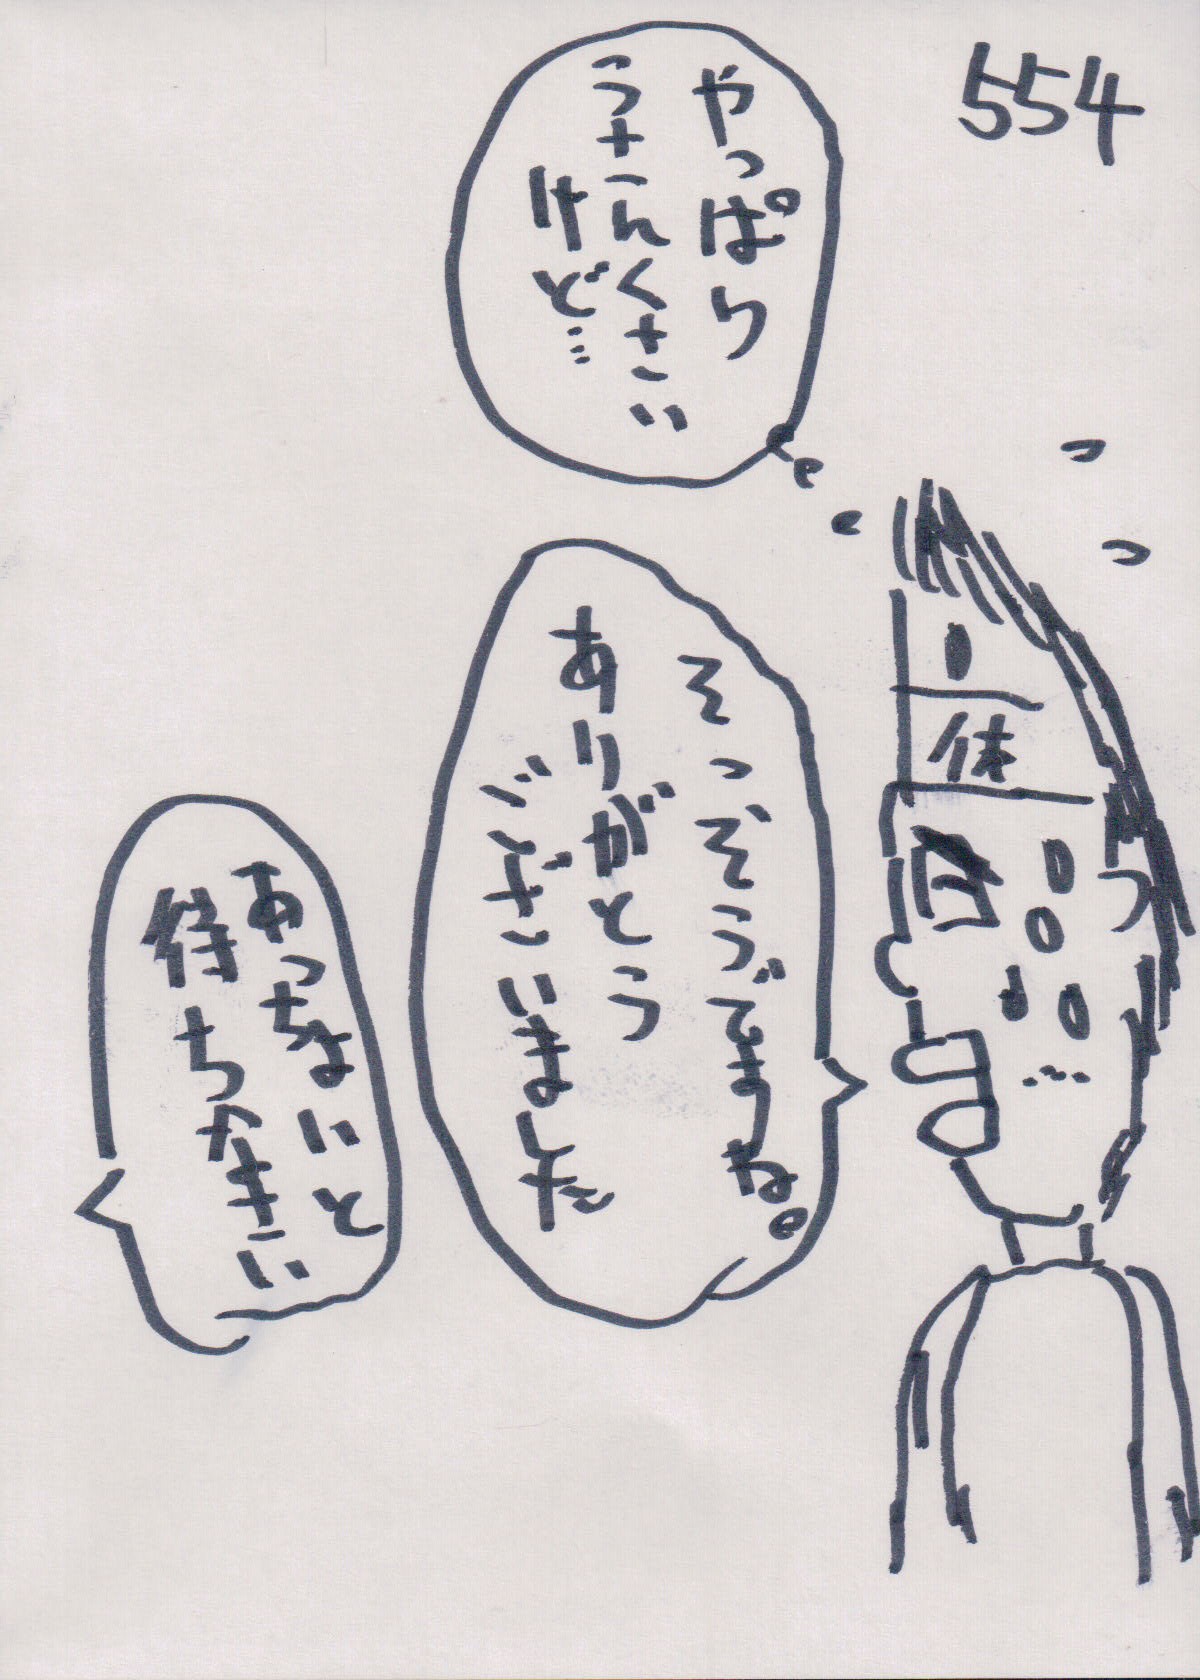 554
やっぱり
うさんくさい
けど…
そっぞうですね。
ありがとう
ございました
あっちょいと
待ちなさい
休